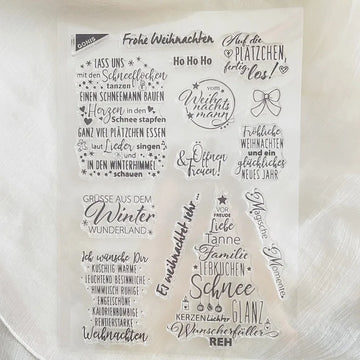 GONIS
Frohe Weihnachten
Auf die
PLÄTZCHEN,
fertig
los!
LASS UNS
mit den Schneeflocken
tanzen
EINEN SCHNEEMANN BAUEN
Herzen in den
Schnee stapfen
GANZ VIEL PLÄTZCHEN ESSEN
laut Lieder singen
und
IN DEN WINTERHIMMEL
schauen
Ho Ho Ho
vom
Weih
nachts
mann
Fröhliche
WEIHNACHTEN
und ein
glückliches
NEUES JAHR
& Öffnen
freuen!
GRÜSSE AUS DEM
Winter
WUNDERLAND
Es weihnachtet sehr...
VOR
FREUDE
Liebe
Tanne
Familie
LEBKUCHEN
Schnee
GLANZ
KERZEN Lichter
Wunscherfüller
REH
Magische Momente
Ich wünsche Dir
KUSCHLIG WARME
LEUCHTEND BESINNLICHE
HIMMLISCH RUHIGE
ENGELSCHÖNE
KALORIENBOMBIGE
RENTIERSTARKE
Weihnachten